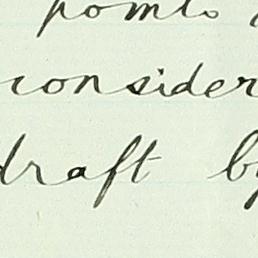 points
consider
draft by